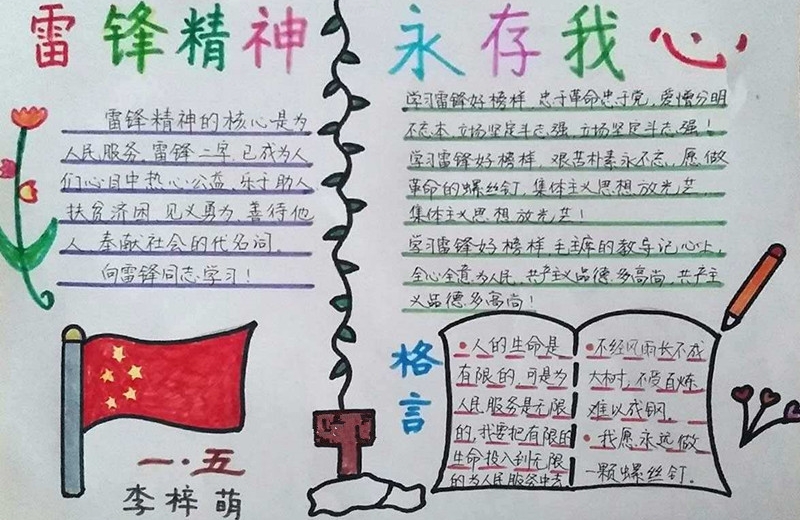 雷锋精神 永存我心
雷锋精神的核心是为
人民服务,雷锋二字,已成为人
们心目中热心公益,乐于助人
扶贫济困,见义勇为,善待他
人,奉献社会的代名词。
向雷锋同志学习!
学习雷锋好榜样,忠于革命忠于党,爱憎分明
不忘本,立场坚定斗志强,立场坚定斗志强!
学习雷锋好榜样,艰苦朴素永不忘,愿做
革命的螺丝钉,集体主义思想放光芒,
集体主义思想放光芒!
学习雷锋好榜样,毛主席的教导记心上,
全心全意为人民,共产主义品德多高尚,共产主
义品德多高尚!
格言
·人的生命是
有限的,可是为
人民服务是无限
的,我要把有限的
生命投入到无限
的为人民服务中去
·不经风雨长不成
大树,不受百炼
难以成钢。
·我愿永远做
一颗螺丝钉.
一·五
李梓萌